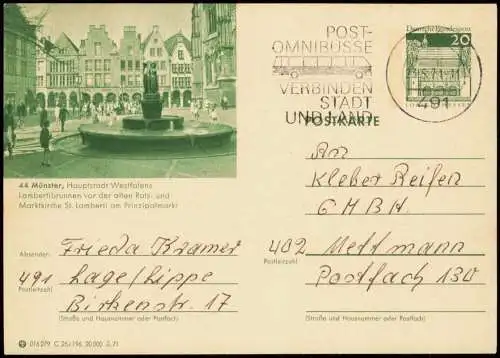 44 Münster, Hauptstadt Westfalens
Lambertibrunnen vor der alten Rats- und
Marktkirche St. Lamberti am Prinzipalmarkt
POST-
OMNIBUSSE
VERBINDEN
STADT
UND LAND
Deutsche Bundespost
20
491
POSTKARTE
An
Kleber Reifen
GMBH
402 Mettmann
(Postleitzahl)
Postfach 130
(Straße und Hausnummer oder Postfach)
Absender:
Frieda Kramer
491 Lage/Lippe
(Postleitzahl)
Birkenstr. 17
(Straße und Hausnummer oder Postfach)